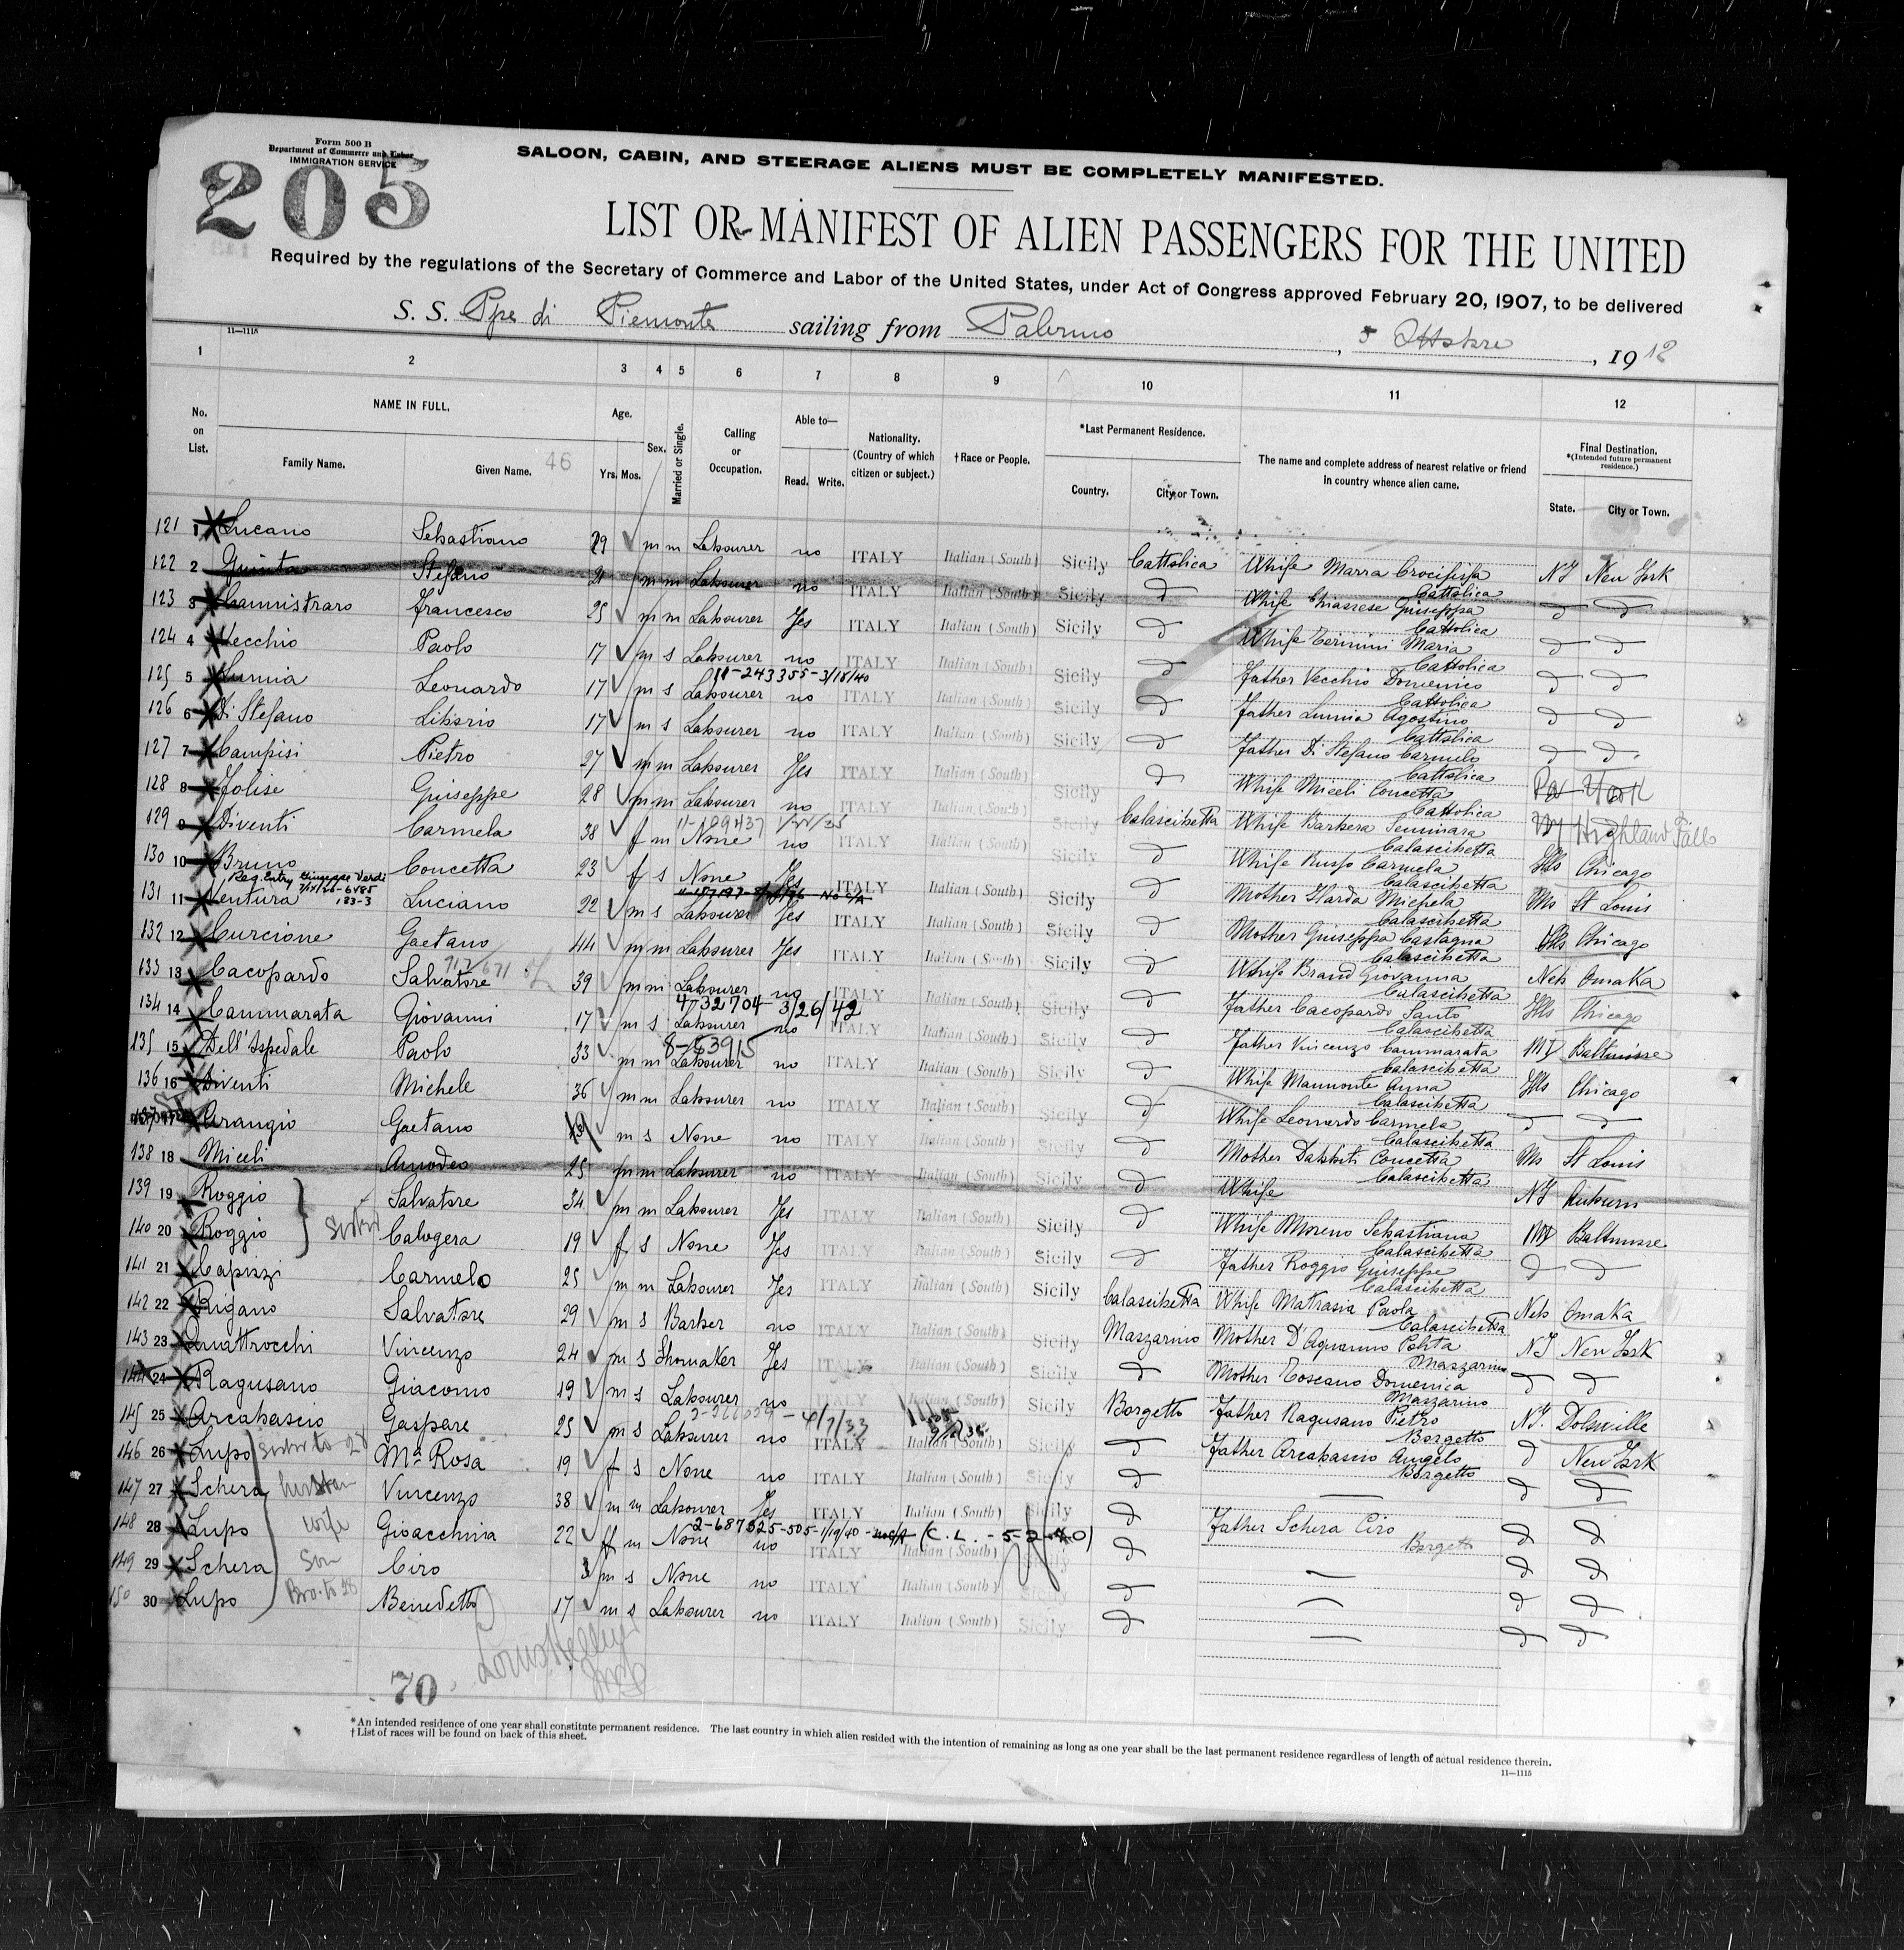 Form 500 B
Department of Commerce and Labor
IMMIGRATION SERVICE
205
SALOON, CABIN, AND STEERAGE ALIENS MUST BE COMPLETELY MANIFESTED.
LIST OR MANIFEST OF ALIEN PASSENGERS FOR THE UNITED
Required by the regulations of the Secretary of Commerce and Labor of the United States, under Act of Congress approved February 20, 1907, to be delivered
S. S. Ppe di Piemonte sailing from Palermo , 5 Ottobre , 1912
11—1115
1 2 3 4 5 6 7 8 9 10 11 12
No. on List. NAME IN FULL. Age. Sex. Married or Single. Calling or Occupation. Able to— Nationality. (Country of which citizen or subject.) †Race or People. *Last Permanent Residence. The name and complete address of nearest relative or friend in country whence alien came. Final Destination. *(Intended future permanent residence.)
Family Name. Given Name. 46 Yrs. Mos. Read. Write. Country. City or Town. State. City or Town.
121 1 Lucano Sebastiano 29 m m Labourer no ITALY Italian (South) Sicily Cattolica Whife Marra Crocifissa Cattolica NY New York
122 2 Stefano m m Labourer no ITALY Italian (South) Sicily d Whife Giuseppa Cattolica d d
123 3 Cannistraro Francesco 25 m m Labourer Yes ITALY Italian (South) Sicily d Whife Termini Maria Cattolica d d
124 4 Vecchio Paolo 17 m s Labourer no ITALY Italian (South) Sicily d Father Vecchio Domenico Cattolica d d
11-243355-3/18/40
125 5 Lumia Leonardo 17 m s Labourer no ITALY Italian (South) Sicily d Father Lumia Agostino Cattolica d d
126 6 Di Stefano Liborio 17 m s Labourer no ITALY Italian (South) Sicily d Father Di Stefano Carmelo Cattolica d d
127 7 Campisi Pietro 27 m m Labourer Yes ITALY Italian (South) Sicily d Whife Miceli Concetta Cattolica
128 8 Folise Giuseppe 28 m m Labourer no ITALY Italian (South) Sicily Calascibetta Whife Barbera Seminara Calascibetta NY Highland Fall
129 9 Diventi Carmela 38 f m None no ITALY Italian (South) Sicily d Whife Russo Carmela Calascibetta Ills Chicago
130 10 Bruno Concetta 23 f s None Yes ITALY Italian (South) Sicily d Mother Ilarda Michela Calascibetta Mo St Louis
Reg. Entry Giuseppe Verdi
131 11 Ventura Luciano 22 m s Labourer Yes ITALY Italian (South) Sicily d Mother Giuseppa Castagna Calascibetta Ills Chicago
132 12 Curcione Gaetano 44 m m Labourer Yes ITALY Italian (South) Sicily d Whife Brand Giovanna Calascibetta Neb Omaka
133 13 Cacopardo Salvatore 39 m m Labourer no ITALY Italian (South) Sicily d Father Cacopardo Santo Calascibetta Ills Chicago
4-732704 3/26/42
134 14 Cammarata Giovanni 17 m s Labourer no ITALY Italian (South) Sicily d Father Vincenzo Cammarata Calascibetta MD Baltimore
135 15 Dell'Ospedale Paolo 33 m m Labourer no ITALY Italian (South) Sicily d Whife Mammonte Anna Calascibetta Ills Chicago
136 16 Diventi Michele 36 m m Labourer no ITALY Italian (South) Sicily d Whife Leonardo Carmela Calascibetta d d
137 17 Arangio Gaetano m s None no ITALY Italian (South) Sicily d Mother Concetta Calascibetta Mo St Louis
138 18 Miceli Amodeo 25 m m Labourer no ITALY Italian (South) Sicily d Whife NY Auburn
139 19 Roggio Salvatore 34 m m Labourer Yes ITALY Italian (South) Sicily d Whife Moreno Sebastiana Calascibetta MD Baltimore
140 20 Roggio Calogera 19 f s None Yes ITALY Italian (South) Sicily d Father Roggio Giuseppe Calascibetta d d
141 21 Capizzi Carmelo 25 m m Labourer Yes ITALY Italian (South) Sicily Calascibetta Whife Matrasia Paola Calascibetta Neb Omaka
142 22 Rigano Salvatore 29 m s Barber no ITALY Italian (South) Sicily Mazzarino Mother D'Aquanno Mazzarino NY New York
143 23 Quattrocchi Vincenzo 24 m s Shomaker Yes ITALY Italian (South) Sicily d Mother Toscano Domenica Mazzarino d d
144 24 Ragusano Giacomo 19 m s Labourer no ITALY Italian (South) Sicily Borgetto Father Ragusano Pietro Borgetto NY. Dolsville
145 25 Arcabascio Gaspare 25 m s Labourer no ITALY Italian (South) Sicily d Father Arcabascio Angelo Borgetto d New York
146 26 Lupo sister to 28 Ma Rosa 19 f s None no ITALY Italian (South) Sicily d — d d
147 27 Schera husban Vincenzo 38 m m Labourer Yes ITALY Italian (South) Sicily d Father Schera Ciro Borgetto d d
2-687525-505-1/19/40 (C. L. - 5-2-40)
148 28 Lupo wife Gioacchina 22 f m None no ITALY Italian (South) d — d d
149 29 Schera Son Ciro 3 m s None no ITALY Italian (South) d — d d
150 30 Lupo Bro. to 28 Benedetto 17 m s Labourer no ITALY Italian (South) Sicily d — d d
70
*An intended residence of one year shall constitute permanent residence. The last country in which alien resided with the intention of remaining as long as one year shall be the last permanent residence regardless of length of actual residence therein.
†List of races will be found on back of this sheet.
11—1115